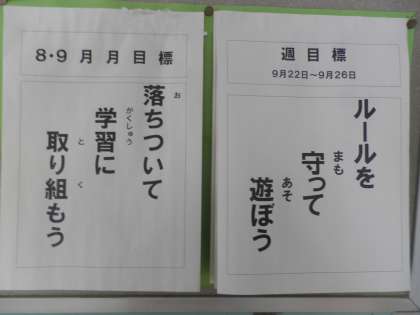 8・9月月目標
落ちついて
学習に
取り組もう
お
がくしゅう
と
く
週目標
9月22日～9月26日
ルールを
守って
遊ぼう
まも
あそ